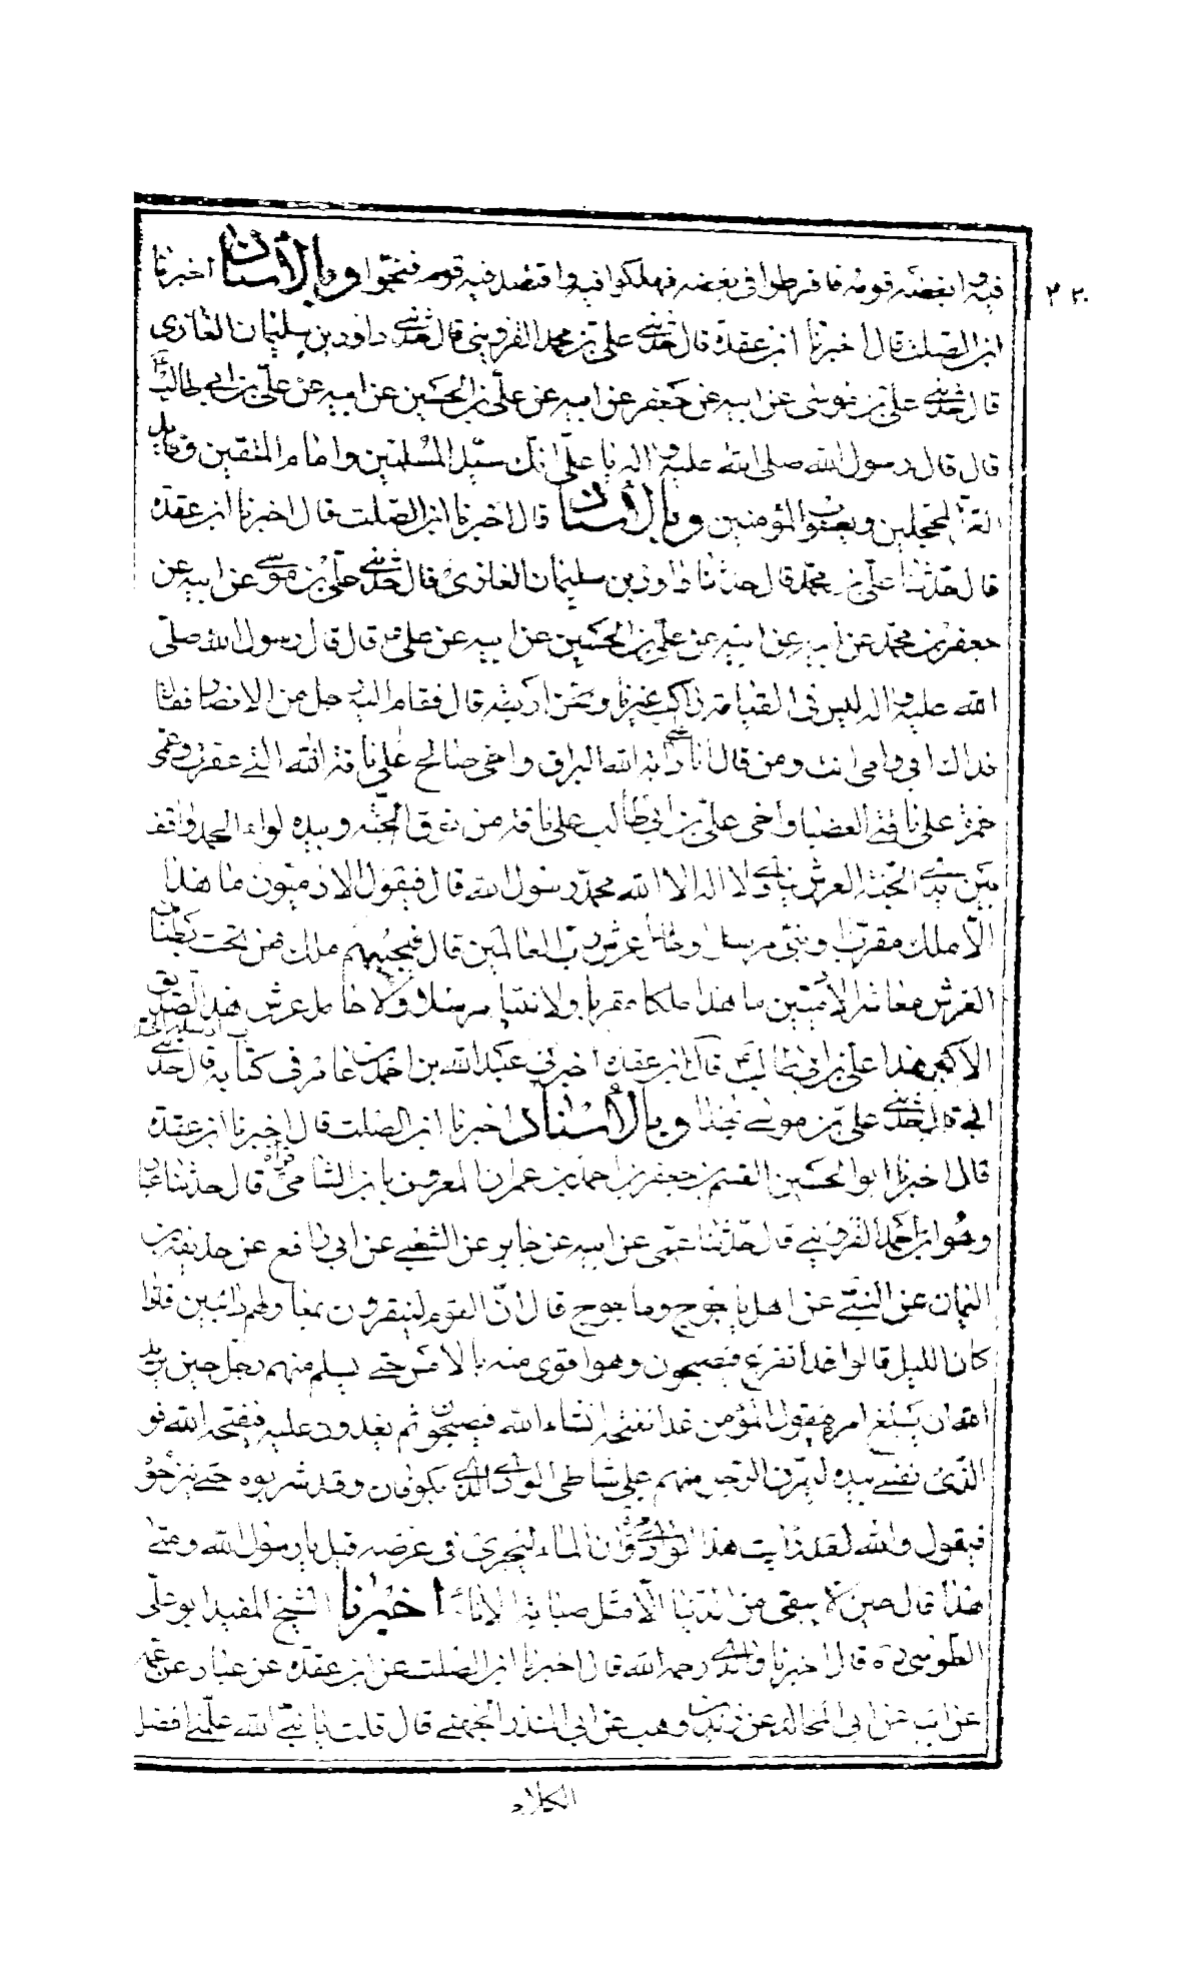 فيه وابغضه قوم فافرطوا فى بغضه فهلكوا فيه واقتصد فيه قوم فنجوا وبالاسناد اخبرنا
ابن الصلت قال اخبرنا ابن عقدة قال حدثنى على بن محمد القزوينى قال حدثنى داود بن سليمان الغازى
قال حدثنى على بن موسى عن ابيه عن جعفر عن ابيه عن على بن الحسين عن ابيه عن على بن ابى طالب
قال قال رسول الله صلى الله عليه واله يا على انك سيد المسلمين وامام المتقين وقايد
الغر المحجلين ويعسوب المؤمنين وبالاسناد قال اخبرنا ابن الصلت قال اخبرنا ابن عقدة
قال حدثنا على بن محمد قال حدثنا داود بن سليمان الغازى قال حدثنى على بن موسى عن ابيه عن
جعفر بن محمد عن ابيه عن ابيه عن على بن الحسين عن ابيه عن على قال قال رسول الله صلى
الله عليه واله ليس فى القيامة راكب غيرنا ونحن اربعة قال فقام اليه رجل من الانصار فقال
فداك ابى وامى انت ومن قال انا على دابة الله البراق واخى صالح على ناقة الله التى عقرت وعمى
حمزة على ناقتى العضبا واخى على بن ابى طالب على ناقة من نوق الجنة وبيده لواء الحمد واقف
بين يدى العرش ينادى لا اله الا الله محمد رسول الله قال فيقول الادميون ما هذا
الا ملك مقرب او نبى مرسل او حامل عرش رب العالمين قال فيجيبهم ملك من تحت بطنان
العرش معاشر الادميين ما هذا ملكا مقربا ولا نبيا مرسلا ولا حامل عرش هذا الصديق
الاكبر هذا على بن ابى طالب قال ابن عقدة اخبرنى عبد الله بن احمد بن عامر فى كتابه قال حدثنى
ابى قال حدثنى على بن موسى بهذا وبالاسناد اخبرنا ابن الصلت قال اخبرنا ابن عقدة
قال اخبرنا ابو الحسين القسم بن جعفر بن احمد بن عمران المعروف بابن الشامى قال حدثنا عباد
وهو ابن احمد القزوينى قال حدثنا عمى عن ابيه عن جابر عن الشعبى عن ابى رافع عن حذيفة بن
اليمان عن النبى عن اهل ياجوج وماجوج قال ان القوم لينقرون بمعاولهم دائبين فاذا
كان الليل قالوا غدا نفرغ فيصبحون وهو اقوى منه بالامس حتى يسلم منهم رجل حين يريد
الله ان يبلغ امره فيقول المؤمن غدا نفتحه انشاء الله فيصبحون ثم يغدون عليه فيفتحه الله فو
الذى نفسى بيده ليمرن الرجل منهم على شاطى الوادى الذى بكوفان وقد شربوه حتى نزحوه
فيقول والله لقد رايت هذا الوادى مرة وان الماء ليجرى فى عرضه قيل يا رسول الله ومتى
هذا قال حين لا يبقى من الدنيا الا مثل صبابة الاناء اخبرنا الشيخ المفيد ابو على
الطوسى ره قال اخبرنا والدى رحمه الله قال اخبرنا ابن الصلت عن ابن عقدة عن عباد عن عمه
عن ابيه عن ابى المجالد عن زيد بن وهب عن ابى المنذر الجهنى قال قلت يا نبى الله علمنى افضل
الكلام